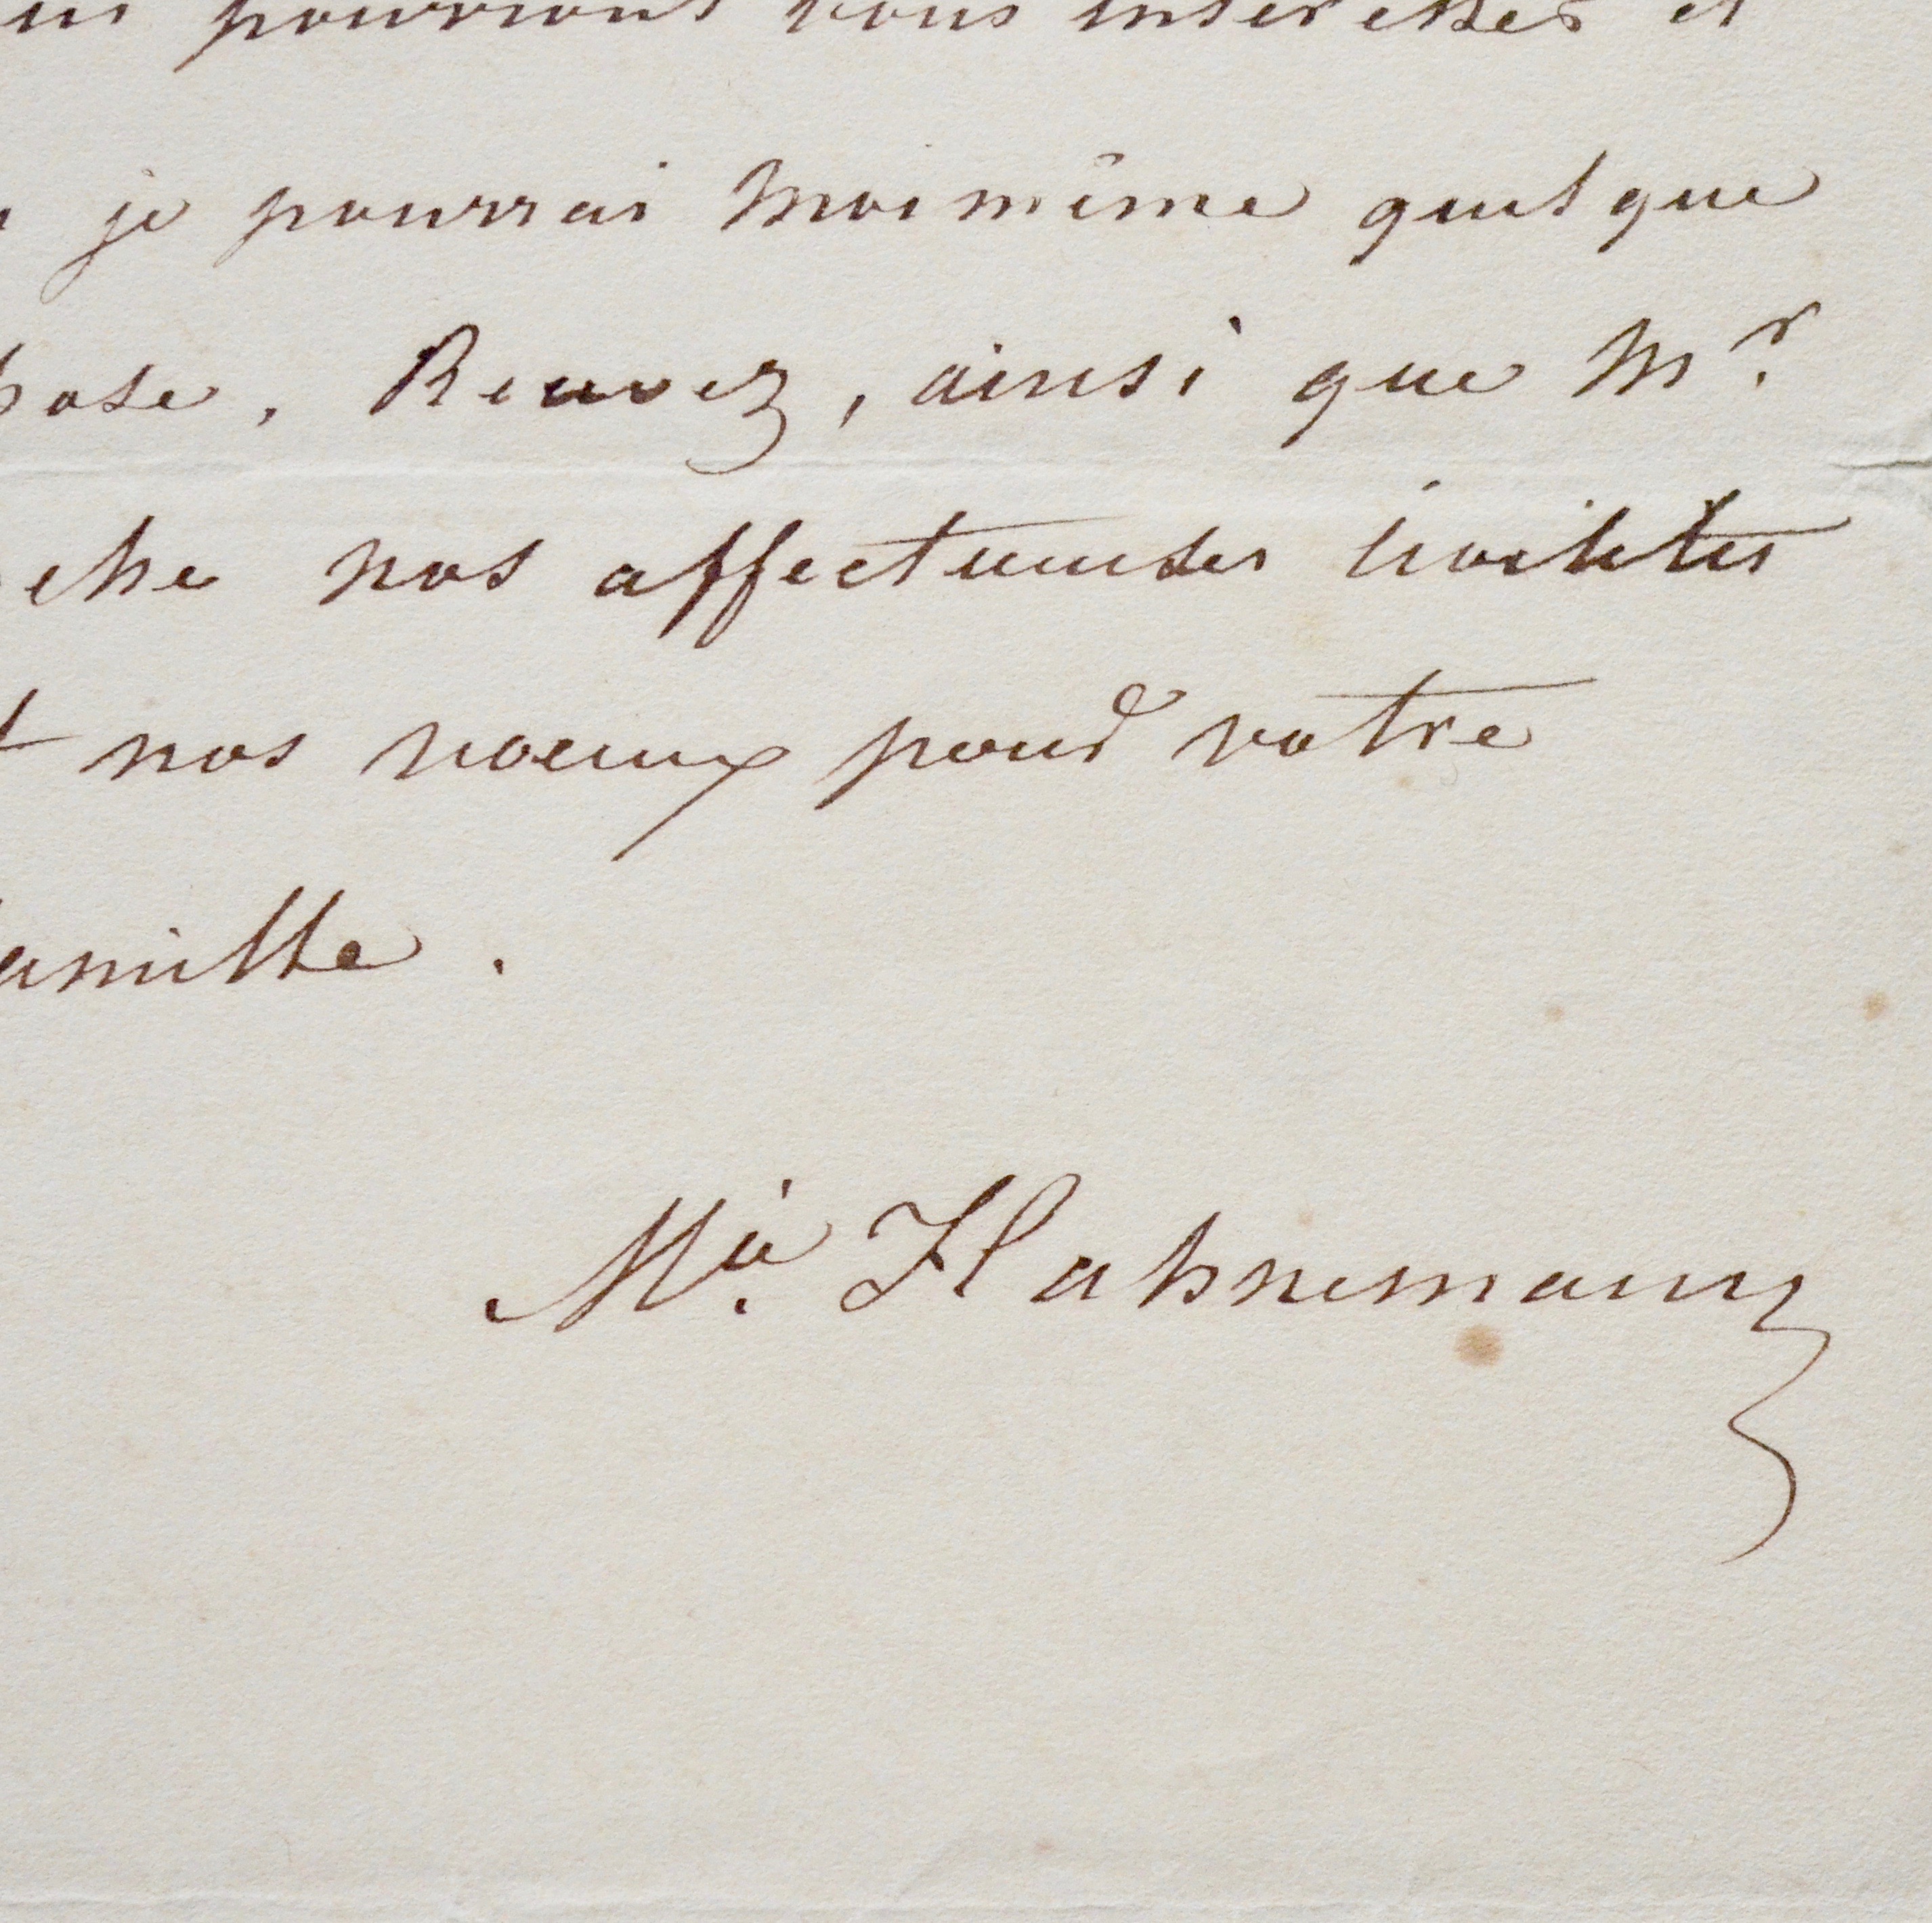 pourront vous intéresser et
je pourrai moi même quelque
chose. Recevez, ainsi que Mr.
nos affectueuses civilités
et nos voeux pour votre
famille.
Mie. Hahnemann